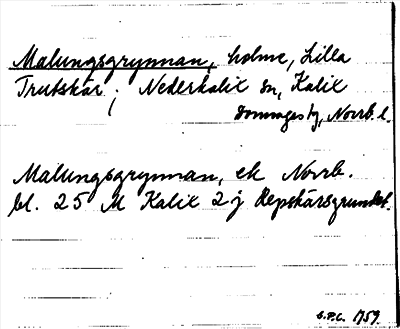 Malungsgrynnan, holme, Lilla
Trutskär; Nederkalix sn, Kalix
domsagas tg, Norrb. l.
Malungsgrynnan, ek Norrb.
bl. 25 M Kalix 2 j Repskärsgrundet.
S.P.C. 1759.